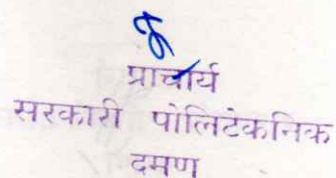 प्राचार्य
सरकारी पोलिटेकनिक
दमण